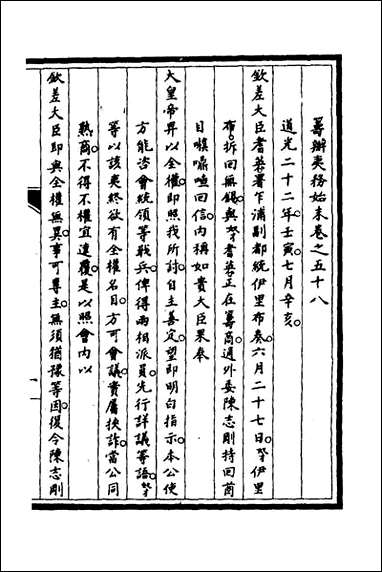 籌辦夷務始末卷之五十八
道光二十二年壬寅七月辛亥
欽差大臣耆英署乍浦副都統伊里布奏六月二十七日奴才伊里
布折回無錫與奴才耆英正在籌商適外委陳志剛持回䓖
目㗎嘑喳回信內稱如貴大臣果奉
大皇帝畀以全權即照我所討自主善定望即明白指示本公使
方能咨會統領等戢兵俾得兩相派員先行詳議等語奴才
等以該夷終欲有全權名目方可會議實屬挾詐當公同
熟商不得不權宜速覆是以照會內以
欽差大臣即與全權無異事可專主無須猶豫等因復令陳志剛